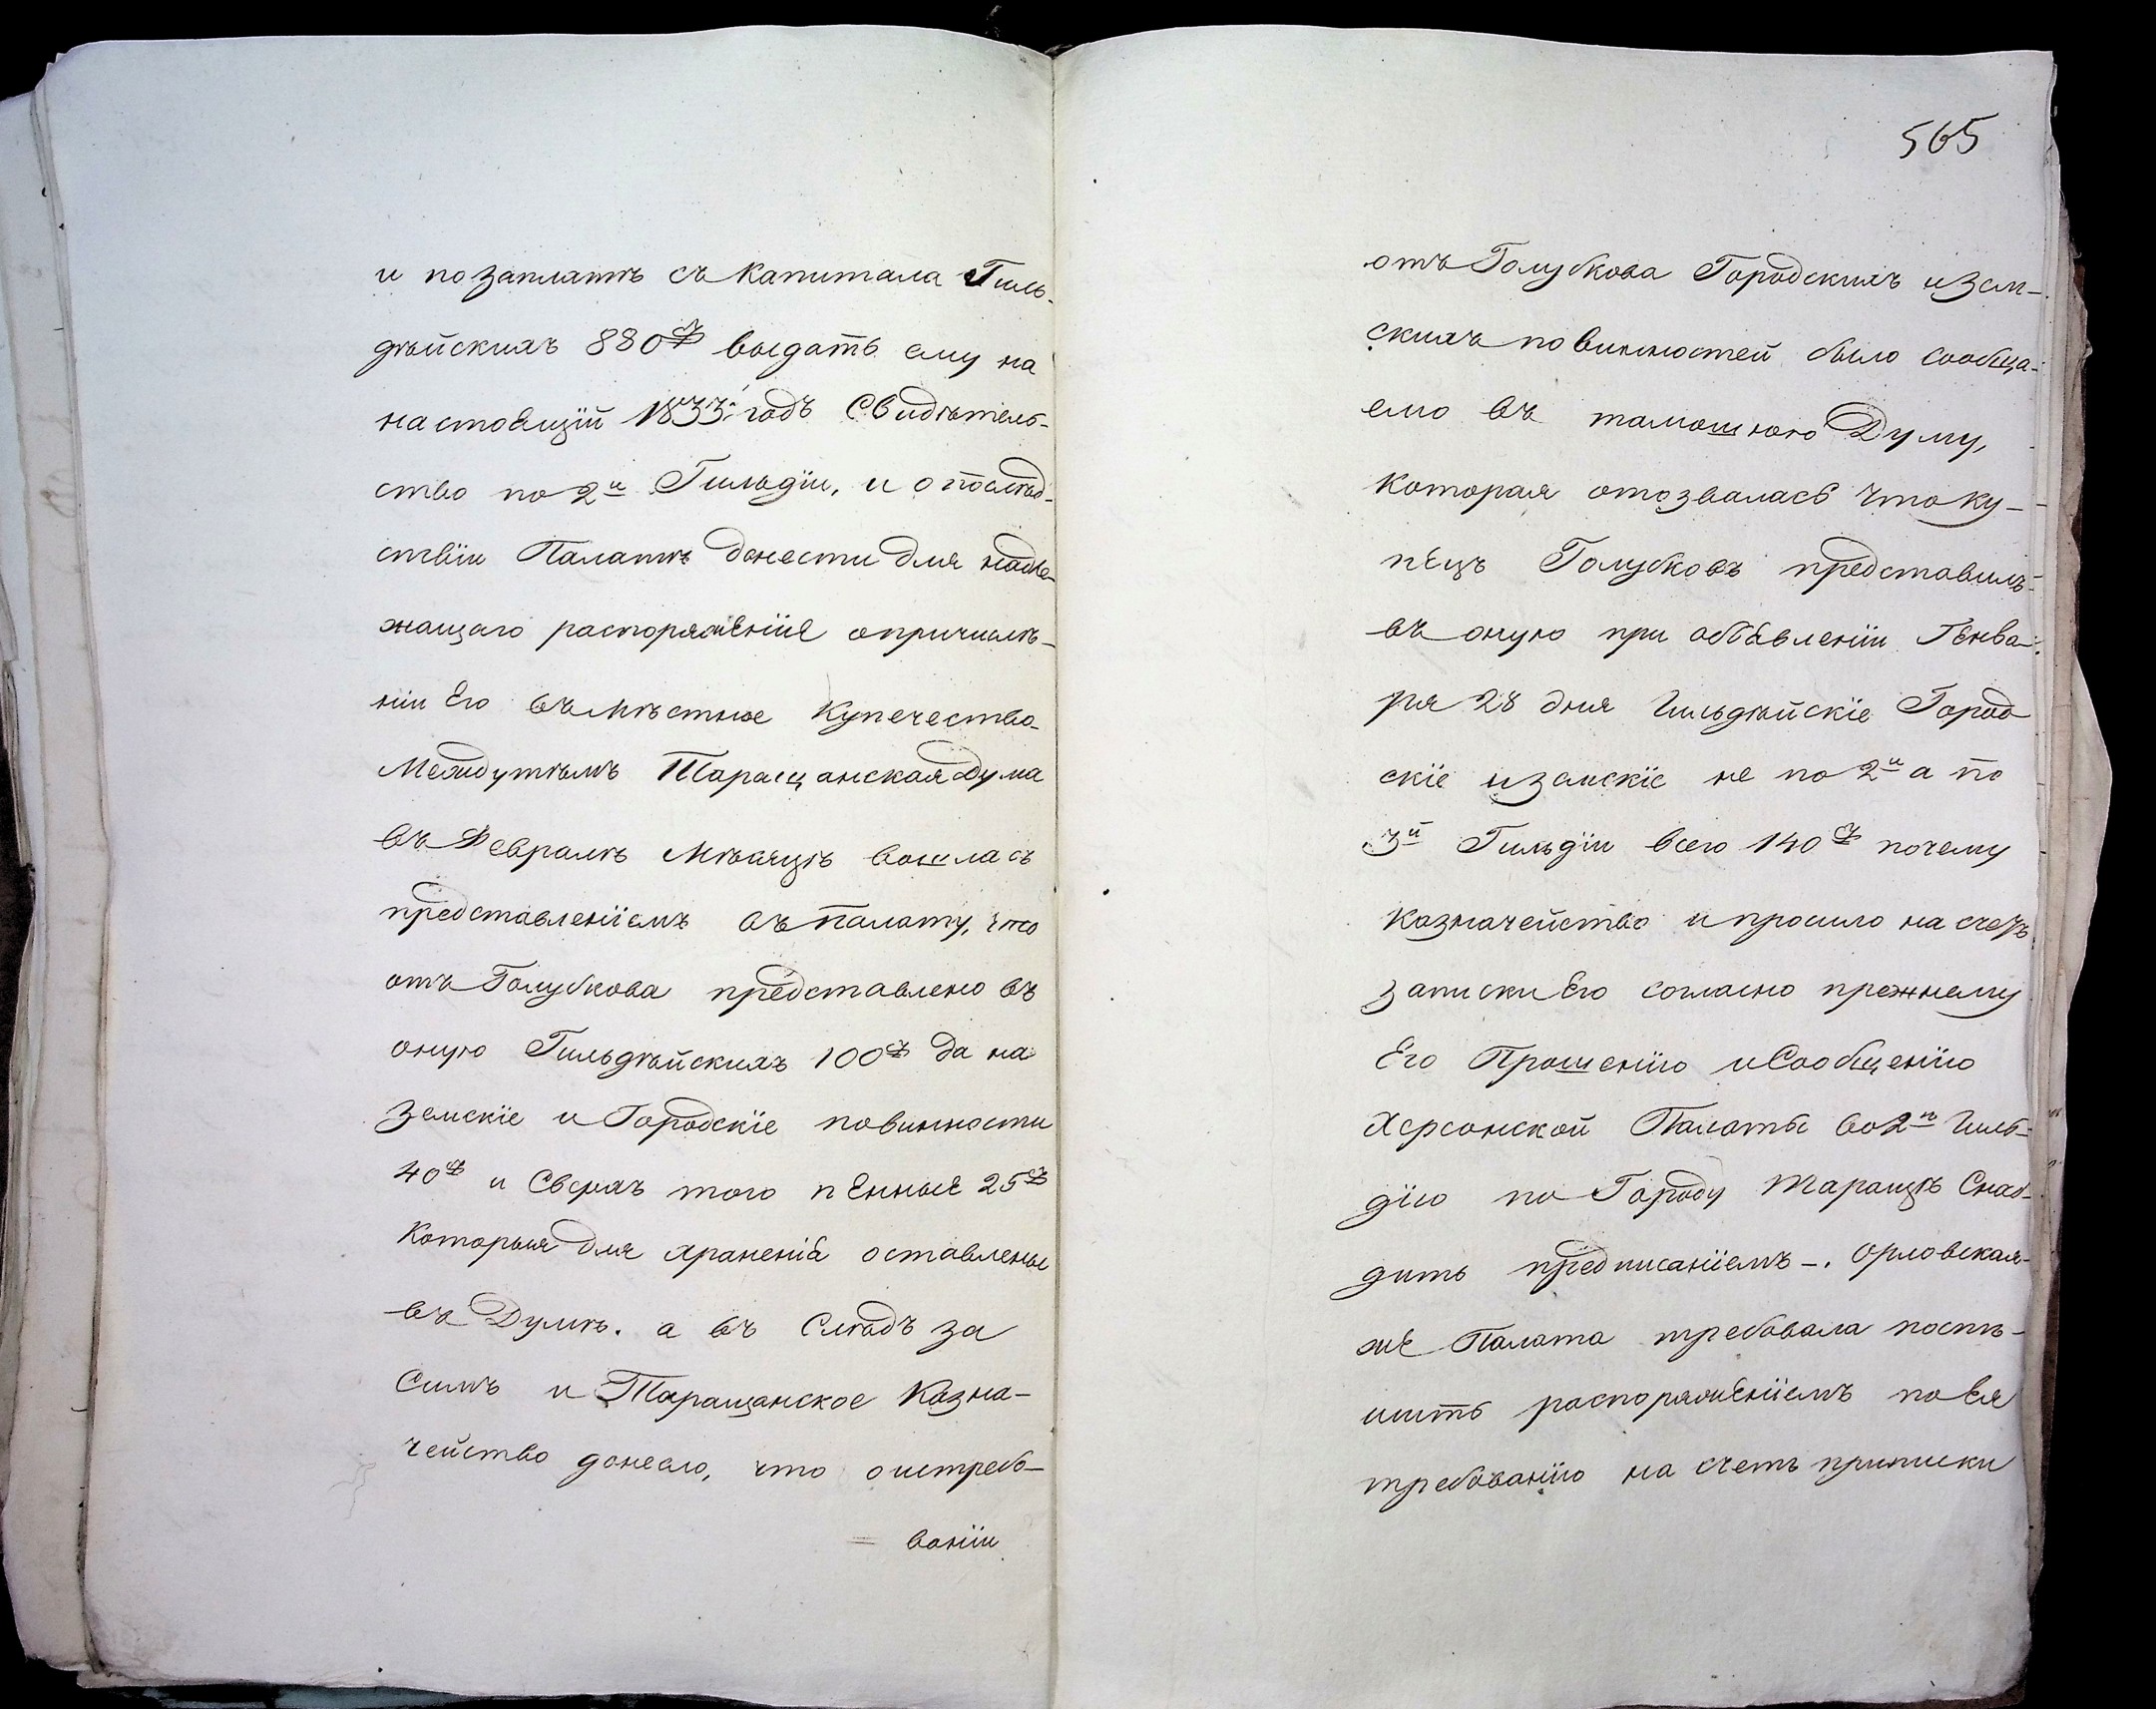 и по заплатѣ съ капитала Гиль-
дѣйскихъ 880 р выдать ему на
настоящій 1833й годъ Свидѣтель-
ство по 2й Гильдіи, и о послѣд-
ствіи Палатѣ донести для надле-
жащаго распоряженія о причисле-
ніи Его въ мѣстное Купечество
Между тѣмъ Таращанская Дума
въ Февралѣ Мѣсяцѣ вошла съ
представленіемъ въ Палату, что
отъ Голубкова представлено въ
оную Гильдѣйскихъ 100 р да на
Земскіе и Городскіе повинности
40 р и Сверхъ того пенныя 25 р
которыя для храненія оставлены
въ Думѣ. а въ Слѣдъ за
Симъ и Таращанское Казна-
чейство донесло, что о истребо-
= ваніи
565
отъ Голубкова Городскихъ и Зем-
скихъ повинностей было сообща-
емо въ тамошнюю Думу,
которая отозвалась что ку-
пецъ Голубковъ представилъ
въ оную при объявленіи Генва-
ря 28 дня Гильдѣйскіе Город
скіе и земскіе не по 2й а по
3й Гильдіи всего 140 р почему
казначейство и просило на счетъ
записки Его согласно прежнему
Его Прошенію и Сообщенію
Херсонской Палаты во 2ю Гиль-
дію по Городу Таращѣ Снаб-
дить предписаніемъ -. Орловская
же Палата требовала поспѣ-
шить распоряженіемъ по Ея
требованію на счетъ приписки